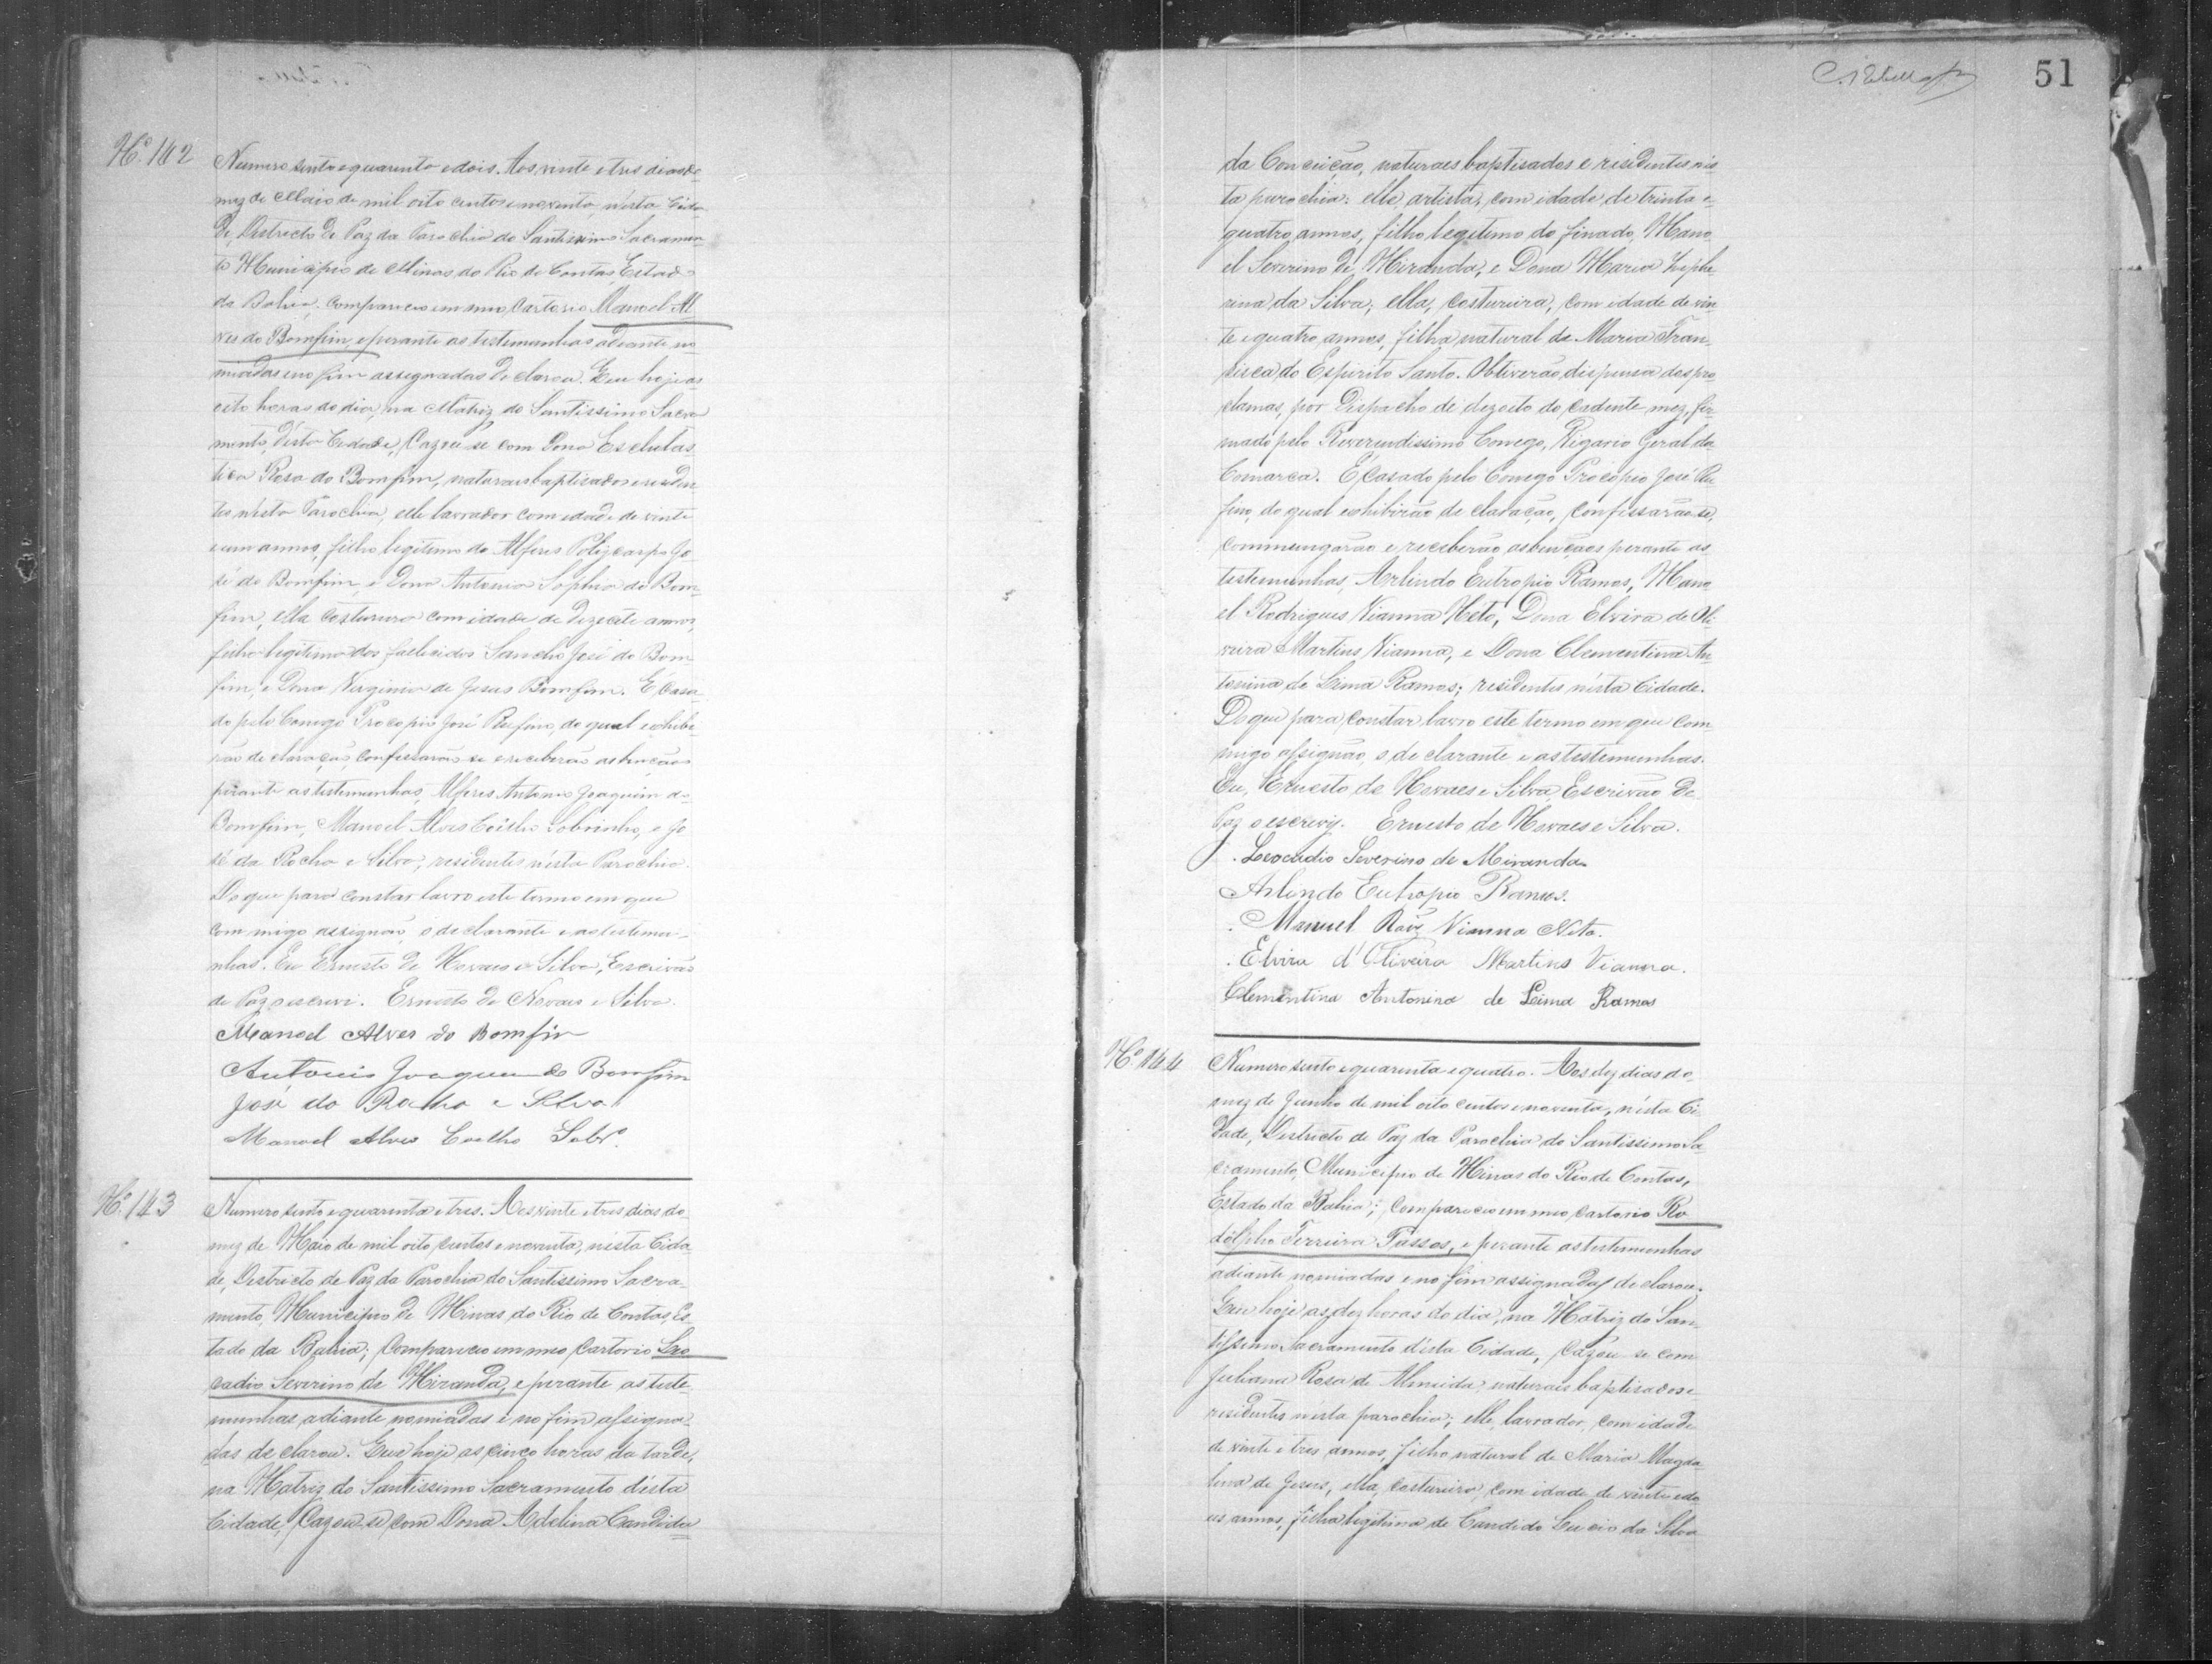 Nº 142
Numero cento e quarenta e dois. Aos vinte e tres dias do
mez de Maio de mil oito centos e noventa, n'esta Cida-
de, Districto de Paz da Parochia do Santissimo Sacramen-
to Municipio de Minas do Rio de Contas, Estado
da Bahia; compareceo em meo Cartorio Manoel Al-
ves do Bomfim, e perante as testemunhas adiante no-
miadas e no fim assignadas declarou. Que hoje as
oito horas do dia, na Matriz do Santissimo Sacra-
mento, d'esta Cidade, Cazou-se com Dona Escholas-
tica Rosa do Bomfim, naturaes baptisados e residen-
tes n'esta Parochia, elle lavrador com idade de vinte
e um annos, filho legitimo do Alferes Polycarpo Jo-
sé do Bomfim, e Dona Antonia Sophia do Bom-
fim, ella costureira com idade de dezesete annos,
filha legitima dos fallecidos Sancho José do Bom-
fim, e Dona Virginia de Jesus Bomfim. É Casa-
do pelo Conego Procopio José Rufino, do qual exhibi-
rão declaração, confessarão-se e receberão as bençãos
perante as testemunhas, Alferes Antonio Joaquim do
Bomfim, Manoel Alves Coêlho Sobrinho, e Jo-
sé da Rocha e Silva, residentes n'esta Parochia.
Do que para constar lavro este termo em que
com migo assignão o declarante e as testemu-
nhas. Eu Ernesto de Novaes e Silva, Escrivão
de Paz o escrevi. Ernesto de Novaes e Silva.
Manoel Alves do Bomfim
Antonio Joaquim do Bomfim
José da Rocha e Silva
Manoel Alves Coelho Sobrº
Nº 143
Numero cento e quarenta e tres. Aos vinte e tres dias do
mez de Maio de mil oito centos e noventa, nesta Cida-
de, Districto de Paz da Parochia do Santissimo Sacra-
mento, Municipio de Minas do Rio de Contas, Es-
tado da Bahia; compareceo em meo Cartorio Leo-
cadio Severino de Miranda, e perante as teste-
munhas adiante nomiadas e no fim assigna-
das declarou. Que hoje as cinco horas da tarde,
na Matriz do Santissimo Sacramento d'esta
Cidade, Cazou-se com Dona Adelina Candida
51
da Conceição, naturaes baptisados e residentes n'es-
ta parochia: elle, artista, com idade de trinta e
quatro annos, filho legitimo do finado, Mano-
el Severino de Miranda, e Dona Maria
da Silva; ella, costureira, com idade de vin-
te e quatro annos, filha natural de Maria Fran-
cisca do Espirito Santo. Obtiverão dispensa dos pro-
clamas, por Dispacho de dezoito do cadente mez, fir-
mado pelo Reverendissimo Conego, Vigario Geral da
Comarca. É Casado pelo Conego Procopio José Ru-
fino, do qual exhibirão declaração, confessarão-se,
commungarão e receberão as bençãos perante as
testemunhas, Arlindo Eutropio Ramos, Mano-
el Rodrigues Vianna Neto, Dona Elvira de Oli-
veira Martins Vianna, e Dona Clementina An-
tonina de Lima Ramos; residentes n'esta Cidade.
Do que para constar lavro este termo em que com-
migo assignão, o declarante e as testemunhas.
Eu, Ernesto de Novaes e Silva, Escrivão de
Paz o escrevy. Ernesto de Novaes e Silva.
Leocadio Severino de Miranda
Arlindo Eutropio Ramos.
Manuel Roiz Vianna Neto.
Elvira d'Oliveira Martins Vianna.
Clementina Antonina de Lima Ramos
Nº 144
Numero cento e quarenta e quatro. Aos dez dias do
mez de Junho de mil oito centos e noventa, n'esta Ci-
dade, Districto de Paz da Parochia do Santissimo Sa-
cramento, Municipio de Minas do Rio de Contas,
Estado da Bahia; compareceo em meo Cartorio Ro-
dolpho Ferreira Passos, e perante as testemunhas
adiante nomiadas e no fim assignadas declarou.
Que hoje as dez horas do dia, na Matriz do San-
tissimo Sacramento d'esta Cidade, Cazou-se com
Juliana Rosa de Almeida, naturaes baptisados e
residentes n'esta parochia; elle, lavrador, com idade
de vinte e tres annos, filho natural de Maria Magda-
lena de Jesus, ella, costureira, com idade de vinte e do-
us annos, filha legitima de Candido Lucio da Silva